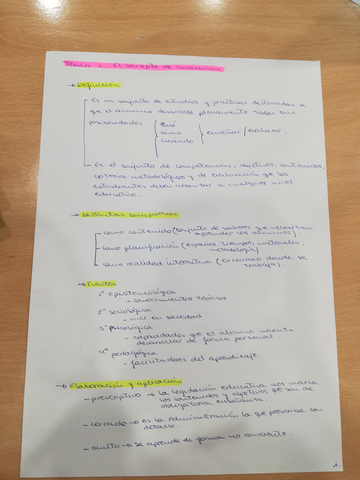 Tema 1. El concepto de currículum
→ Definición
Es un conjunto de estudios y prácticas destinadas a
que el alumno desarrolle plenamente todas sus
posibilidades
Qué
Cómo
Cuándo
enseñar / evaluar.
Es el conjunto de competencias, objetivos, contenidos,
criterios metodológicos y de evaluación que los
estudiantes deben alcanzar a cualquier nivel
educativo.
→ Distintas concepciones
- Como contenido (conjunto de saberes que necesitan
aprender los alumnos).
- Como planificación (espacios, tiempos, materiales,
metodología)
- Como realidad interactiva (escenario donde se
trabaja)
→ Fuentes
1º epistemológica
- conocimientos teóricos
2º sociológica
- vivir en sociedad
3º psicológica
- capacidades que el alumno necesita
desarrollar de forma personal.
4º pedagógica
- facilitadores del aprendizaje.
→ Elaboración y aplicación
- prescriptivo → la legislación educativa nos marca
los contenidos y objetivos que son de
obligatoria enseñanza.
- cerrado → es la Administración la que
detalle
- oculto → se aprende de forma no consciente.
1.